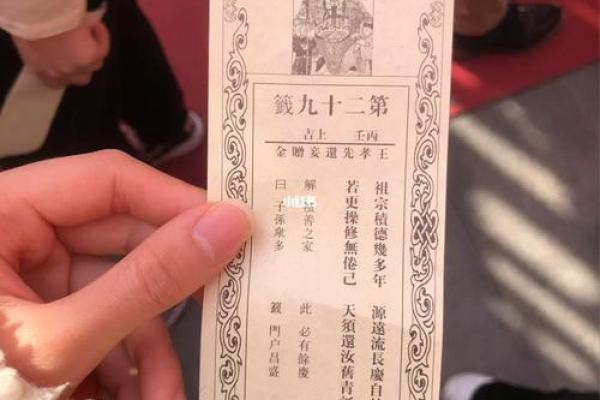 第二十九籤
丙壬 上吉
王孝先還妾贈金
祖宗積德幾多年 源遠流長慶自
若更操修無倦己 天須還汝舊青
解 善之家 此 必有餘慶
曰 子孫衆多 籤 門户昌盛
小红书